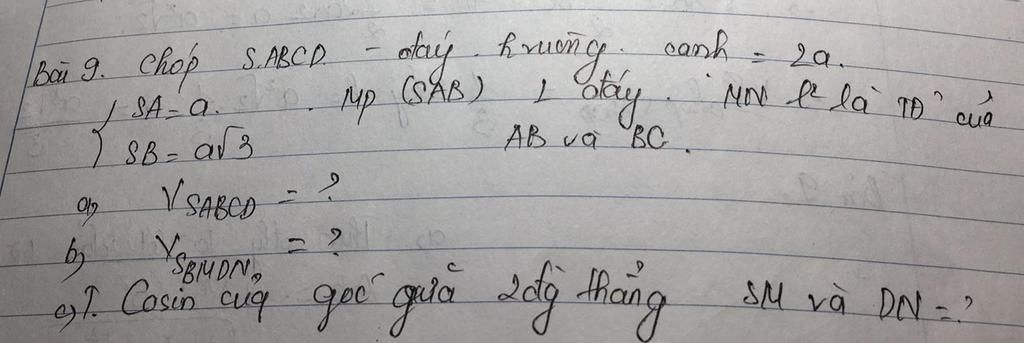 Bài 9. Chóp S.ABCD - đáy hvuông. cạnh = 2a.
{ SA = a. . MP (SAB) ⊥ đáy. MN l² là TĐ' của
SB = a√3 AB và BC.
a, V_SABCD = ?
b, V_SBMDN = ?
c, T. Cosin của góc giữa 2đg thẳng SM và DN = ?